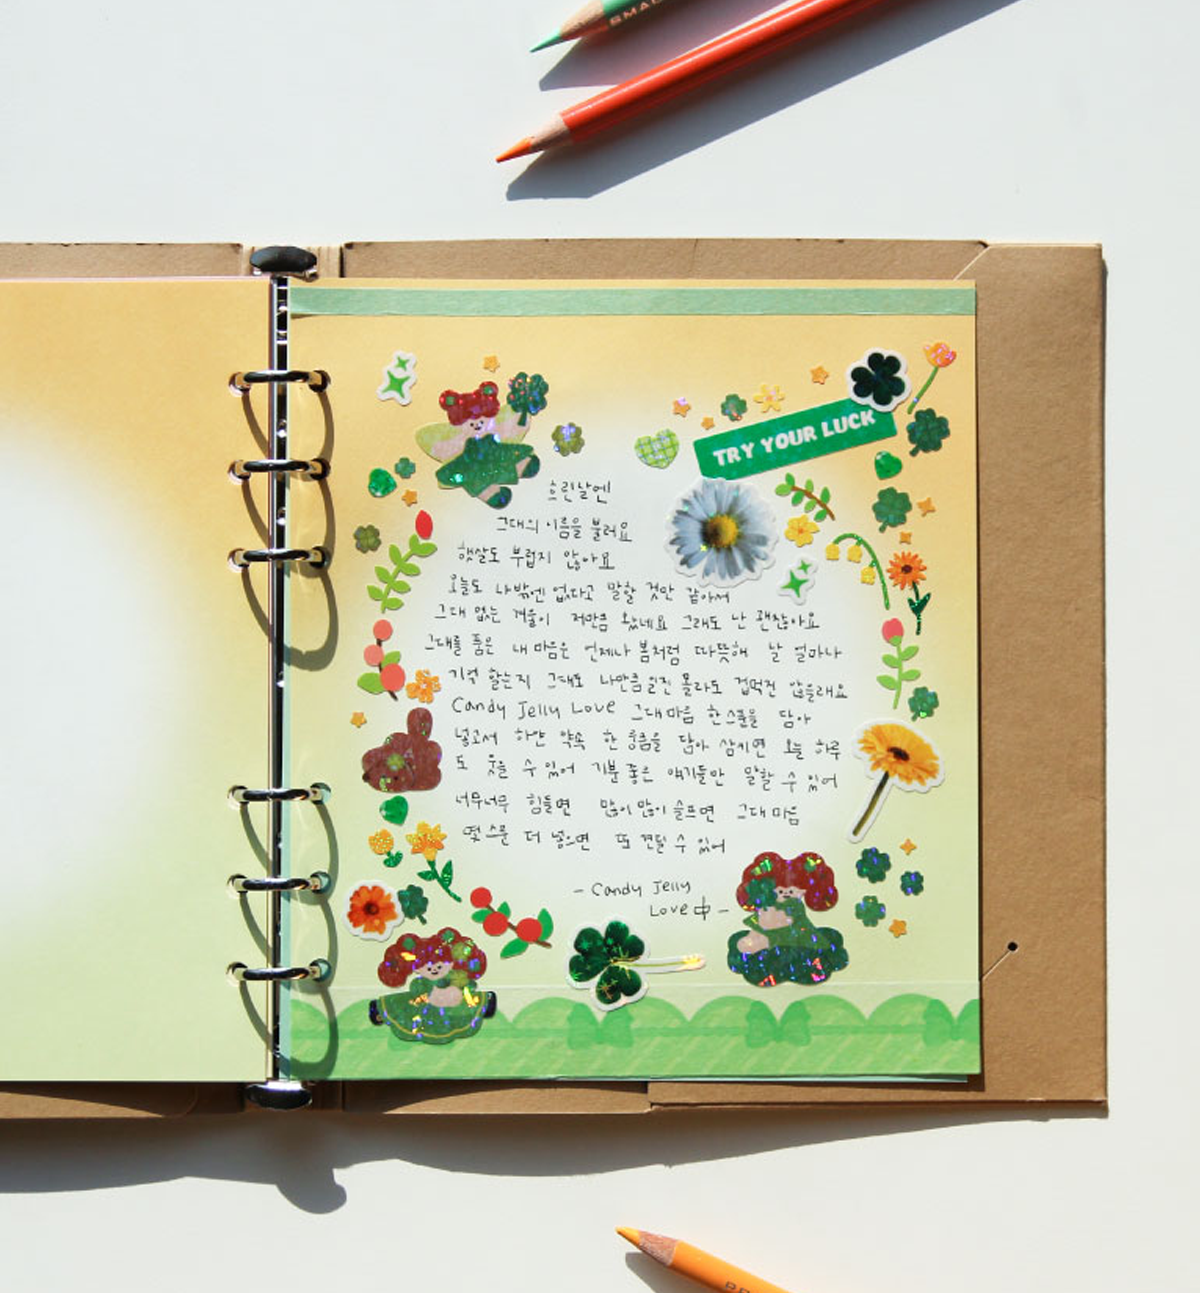 SMA
TRY YOUR LUCK
흐린날엔
그대의 이름을 불러요
햇살도 부럽지 않아요
오늘도 나밖엔 없다고 말할 것만 같아서
그대 없는 겨울이 저만큼 왔네요 그래도 난 괜찮아요
그대를 품은 내 마음은 언제나 봄처럼 따뜻해 날 얼마나
기억 할는지 그대도 나만큼일진 몰라도 겁먹진 않을래요
Candy Jelly Love 그대마음 한스푼을 담아
넣고서 하얀 약속 한 움큼을 담아 삼키면 오늘 하루
도 웃을 수 있어 기분 좋은 얘기들만 말할 수 있어
너무너무 힘들면 많이 많이 슬프면 그대 마음
몇 스푼 더 넣으면 또 견딜 수 있어
- Candy Jelly
Love 中 -